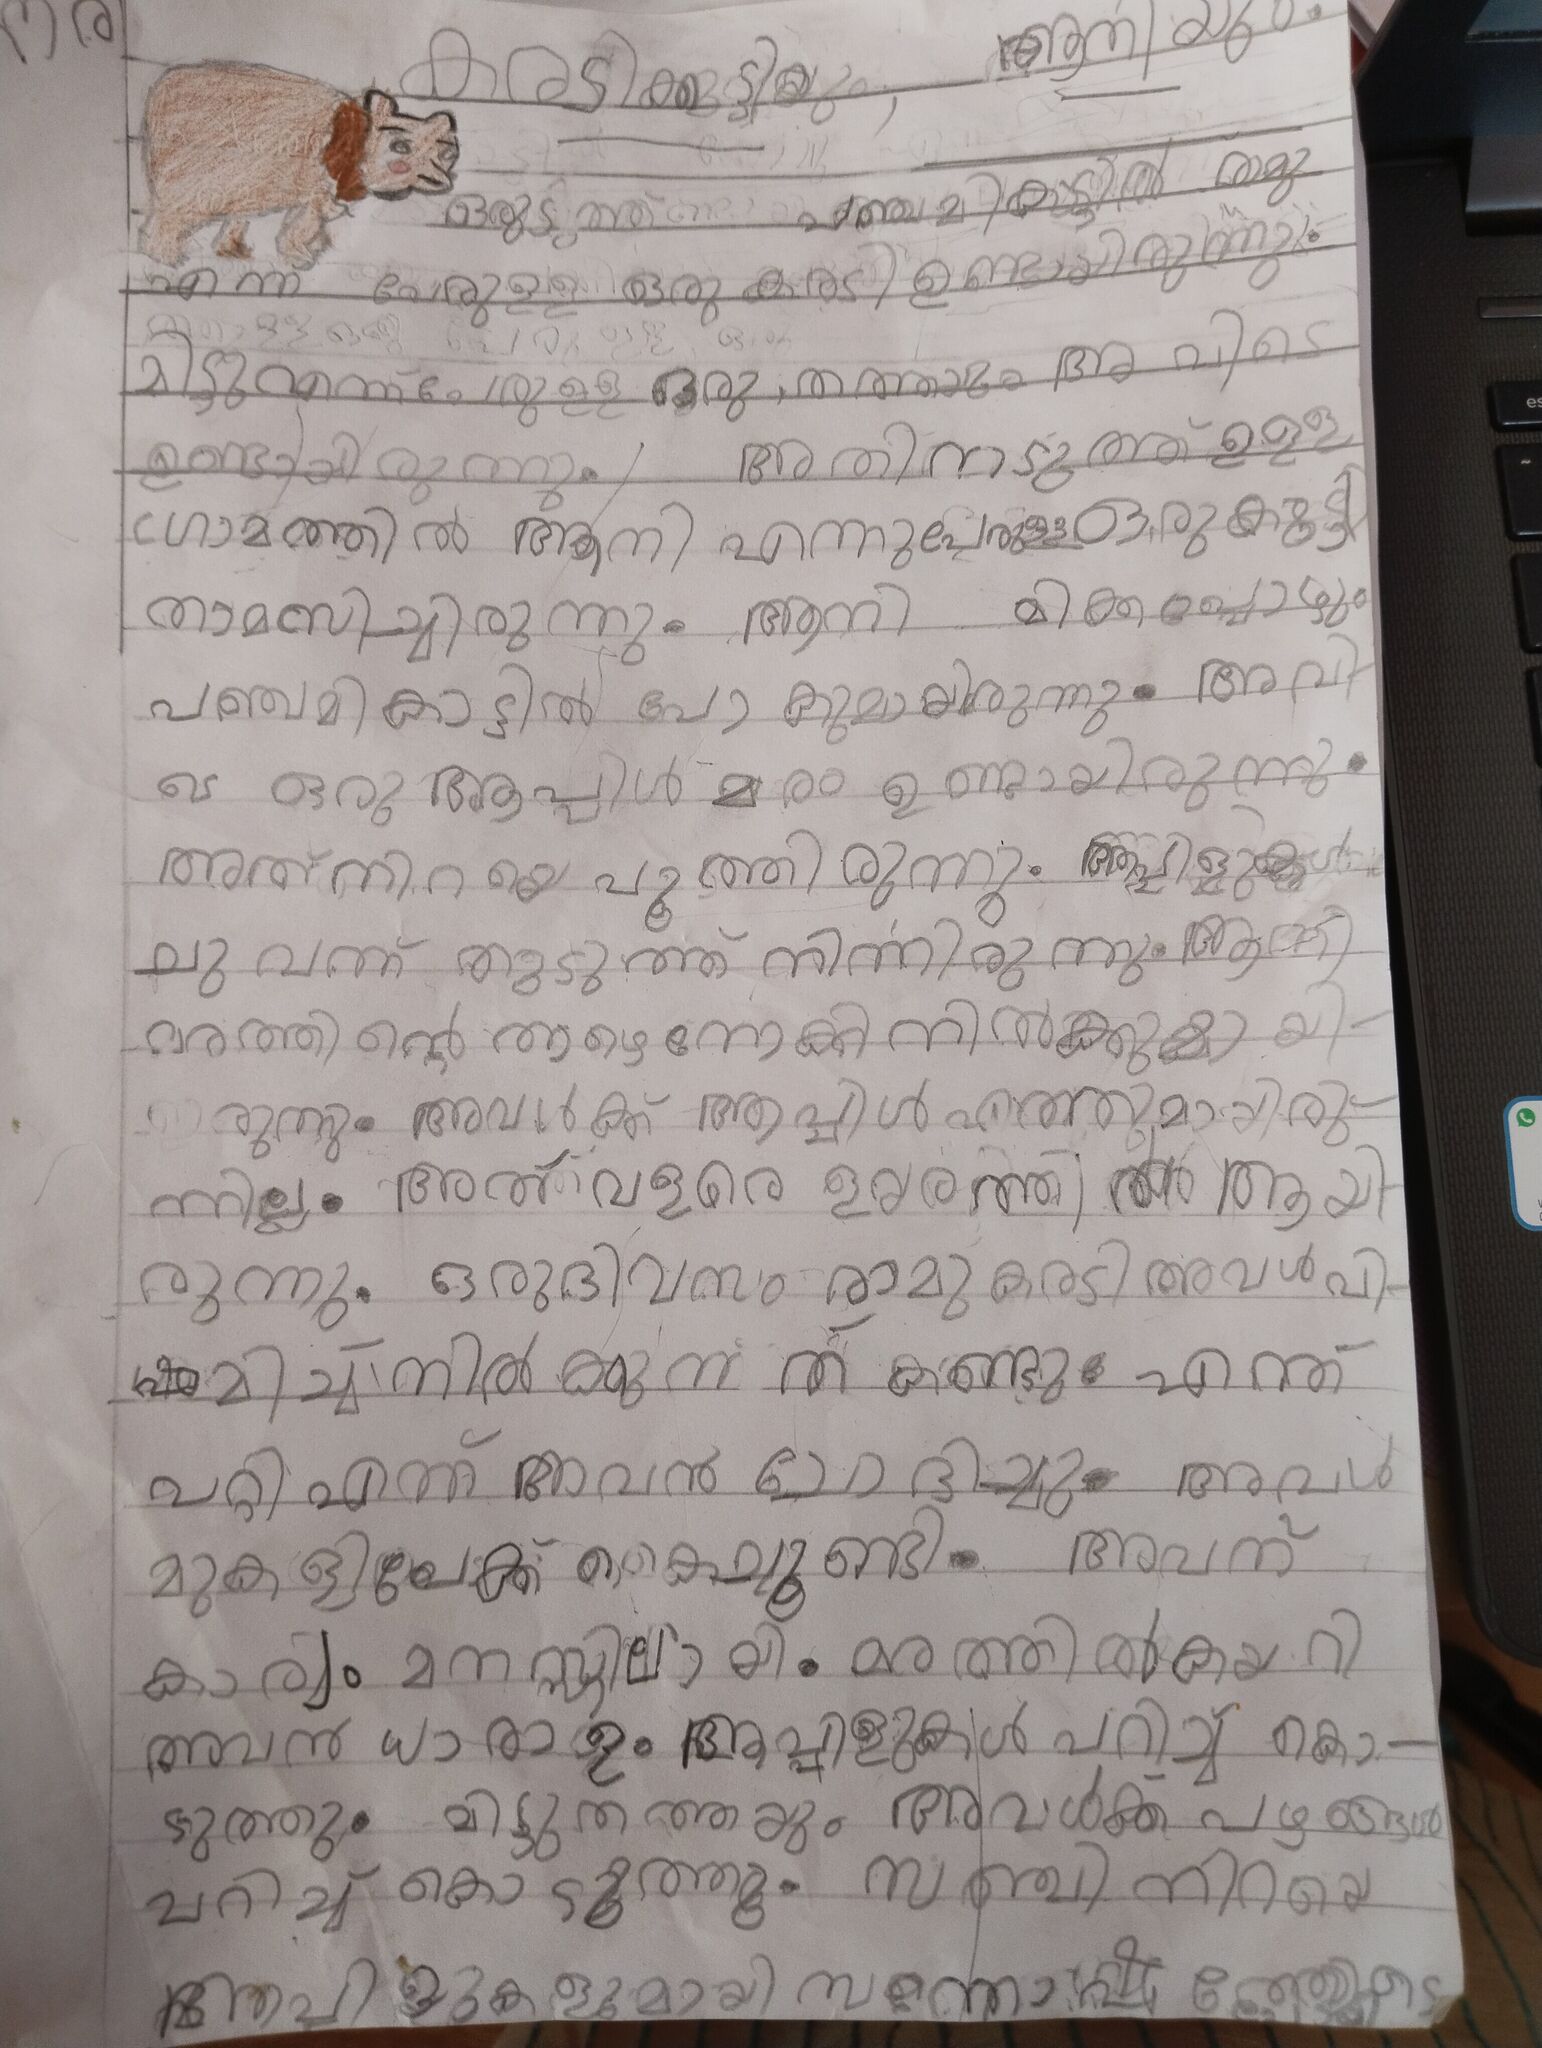 കരടിക്കുട്ടിയും, ആനിയും.
ഒരിടത്ത് പഞ്ചമിക്കാട്ടിൽ
എന്ന് പേരുള്ള ഒരു കരടി ഉണ്ടായിരുന്നു.
മിട്ടു എന്ന് പേരുള്ള ഒരു തത്തയും അവിടെ
ഉണ്ടായിരുന്നു. അതിനടുത്ത് ഉള്ള
ഗ്രാമത്തിൽ ആനി എന്നുപേരുള്ള ഒരുകുട്ടി
താമസിച്ചിരുന്നു. ആനി മിക്കപ്പൊഴും
പഞ്ചമികാട്ടിൽ പോകുമായിരുന്നു. അവി-
ടെ ഒരു ആപ്പിൾ മരം ഉണ്ടായിരുന്നു.
അത് നിറയെ പൂത്തിരുന്നു. ആപ്പിളുകൾ
ചുവന്ന് തുടുത്ത് നിന്നിരുന്നു. ആനി
മരത്തിന്റെ താഴെ നോക്കി നിൽക്കുമായി-
രുന്നു. അവൾക്ക് ആപ്പിൾ എത്തുമായിരു-
ന്നില്ല. അത് വളരെ ഉയരത്തിൽ ആയി-
രുന്നു. ഒരുദിവസം രാമുകരടി അവൾ വി-
ഷമിച്ച് നിൽക്കുന്നത് കണ്ടു. എന്ത്
പറ്റി എന്ന് അവൻ ചോദിച്ചു. അവൾ
മുകളിലേക്ക് കൈചൂണ്ടി. അവന്
കാര്യം മനസ്സിലായി. മരത്തിൽകയറി
അവൻ ധാരാളം ആപ്പിളുകൾ പറിച്ച് കൊ-
ടുത്തു. മിട്ടുതത്തയും അവൾക്ക് പഴങ്ങൾ
പറിച്ച് കൊടുത്തു. സഞ്ചി നിറയെ
ആപ്പിളുകളുമായി